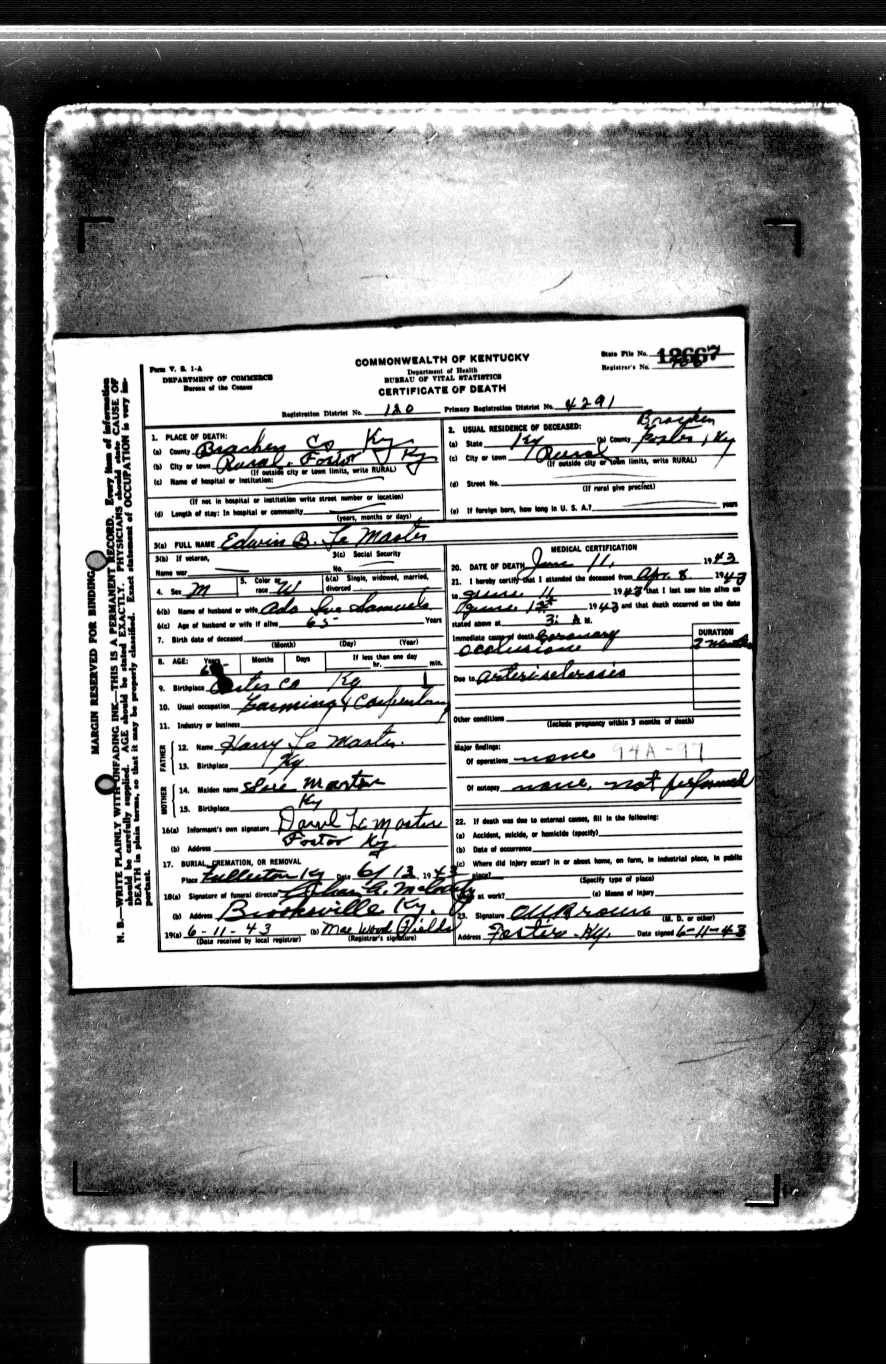 Form V. S. 1-A
DEPARTMENT OF COMMERCE
Bureau of the Census
COMMONWEALTH OF KENTUCKY
Department of Health
BUREAU OF VITAL STATISTICS
CERTIFICATE OF DEATH
State File No. 12667
Registrar's No.
Registration District No. 120 Primary Registration District No. 4291
MARGIN RESERVED FOR BINDING
N. B.—WRITE PLAINLY WITH UNFADING INK—THIS IS A PERMANENT RECORD. Every item of information
should be carefully supplied. AGE should be stated EXACTLY. PHYSICIANS should state CAUSE OF
DEATH in plain terms, so that it may be properly classified. Exact statement of OCCUPATION is very im-
portant.
1. PLACE OF DEATH:
(a) County Bracken Co Ky
(b) City or town Rural. Foster Ky
(If outside city or town limits, write RURAL)
(c) Name of hospital or institution:
(If not in hospital or institution write street number or location)
(d) Length of stay: In hospital or community
(years, months or days)
2. USUAL RESIDENCE OF DECEASED:
(a) State Ky (b) County Bracken
Foster, Ky
(c) City or town Rural
(If outside city or town limits, write RURAL)
(d) Street No.
(If rural give precinct)
(e) If foreign born, how long in U. S. A.? years
3(a) FULL NAME Edwin B. Le Master
3(b) If veteran,
Name war
3(c) Social Security
No.
4. Sex M
5. Color or
race W
6(a) Single, widowed, married,
divorced
6(b) Name of husband or wife Ada Sue Samuels
6(c) Age of husband or wife if alive 65 Years
7. Birth date of deceased
(Month) (Day) (Year)
8. AGE: Years Months Days If less than one day
hr. min.
9. Birthplace Co Ky
10. Usual occupation Farming & Carpentry
11. Industry or business
FATHER
12. Name Harry Le Master
13. Birthplace Ky
MOTHER
14. Maiden name Martin
15. Birthplace Ky
16(a) Informant's own signature Le Master
(b) Address Foster Ky
17. BURIAL, CREMATION, OR REMOVAL
Place Fullerton Ky Date 6/13, 1943
18(a) Signature of funeral director
(b) Address Brooksville Ky.
19(a) 6-11-43 (b) Mae Wood Fields
(Date received by local registrar) (Registrar's signature)
MEDICAL CERTIFICATION
20. DATE OF DEATH June 11, 1943
21. I hereby certify that I attended the deceased from Apr. 8 1943
to June 11 1943 that I last saw him alive on
June 1st 1943 and that death occurred on the date
stated above at 3: A M.
Immediate cause of death Coronary
occlusion
DURATION
2 months
Due to arteriosclerosis
Other conditions
(Include pregnancy within 3 months of death)
Major findings:
Of operations none 94A-97
Of autopsy none, not performed
22. If death was due to external causes, fill in the following:
(a) Accident, suicide, or homicide (specify)
(b) Date of occurrence
(c) Where did injury occur? In or about home, on farm, in industrial place, in public
place?
(Specify type of place)
at work? (e) Means of injury
23. Signature
(M. D. or other)
Address Foster, Ky. Date signed 6-11-43